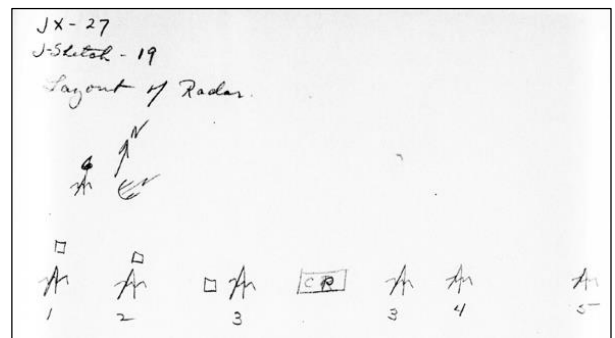 JX-27
J-Sketch-19
Layout of Radar.
6 N
CR
1 2 3 3 4 5